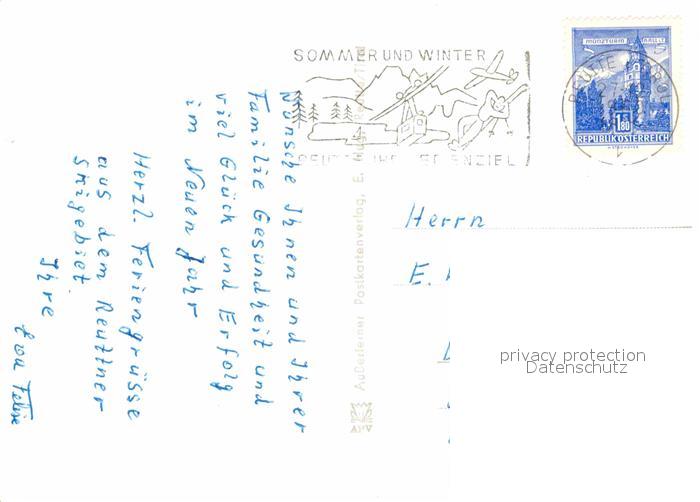 SOMMER UND WINTER
MÜNZTURM HALL i.T.
1.80
REPUBLIK ÖSTERREICH
REUTTE
Wünsche Ihnen und Ihrer
Familie Gesundheit und
viel Glück und Erfolg
im Neuen Jahr
Herzl. Feriengrüsse
aus dem Reuttner
Skigebiet.
Ihre
Außerferner Postkartenverlag, E.
APV
Herrn
E.
privacy protection
Datenschutz